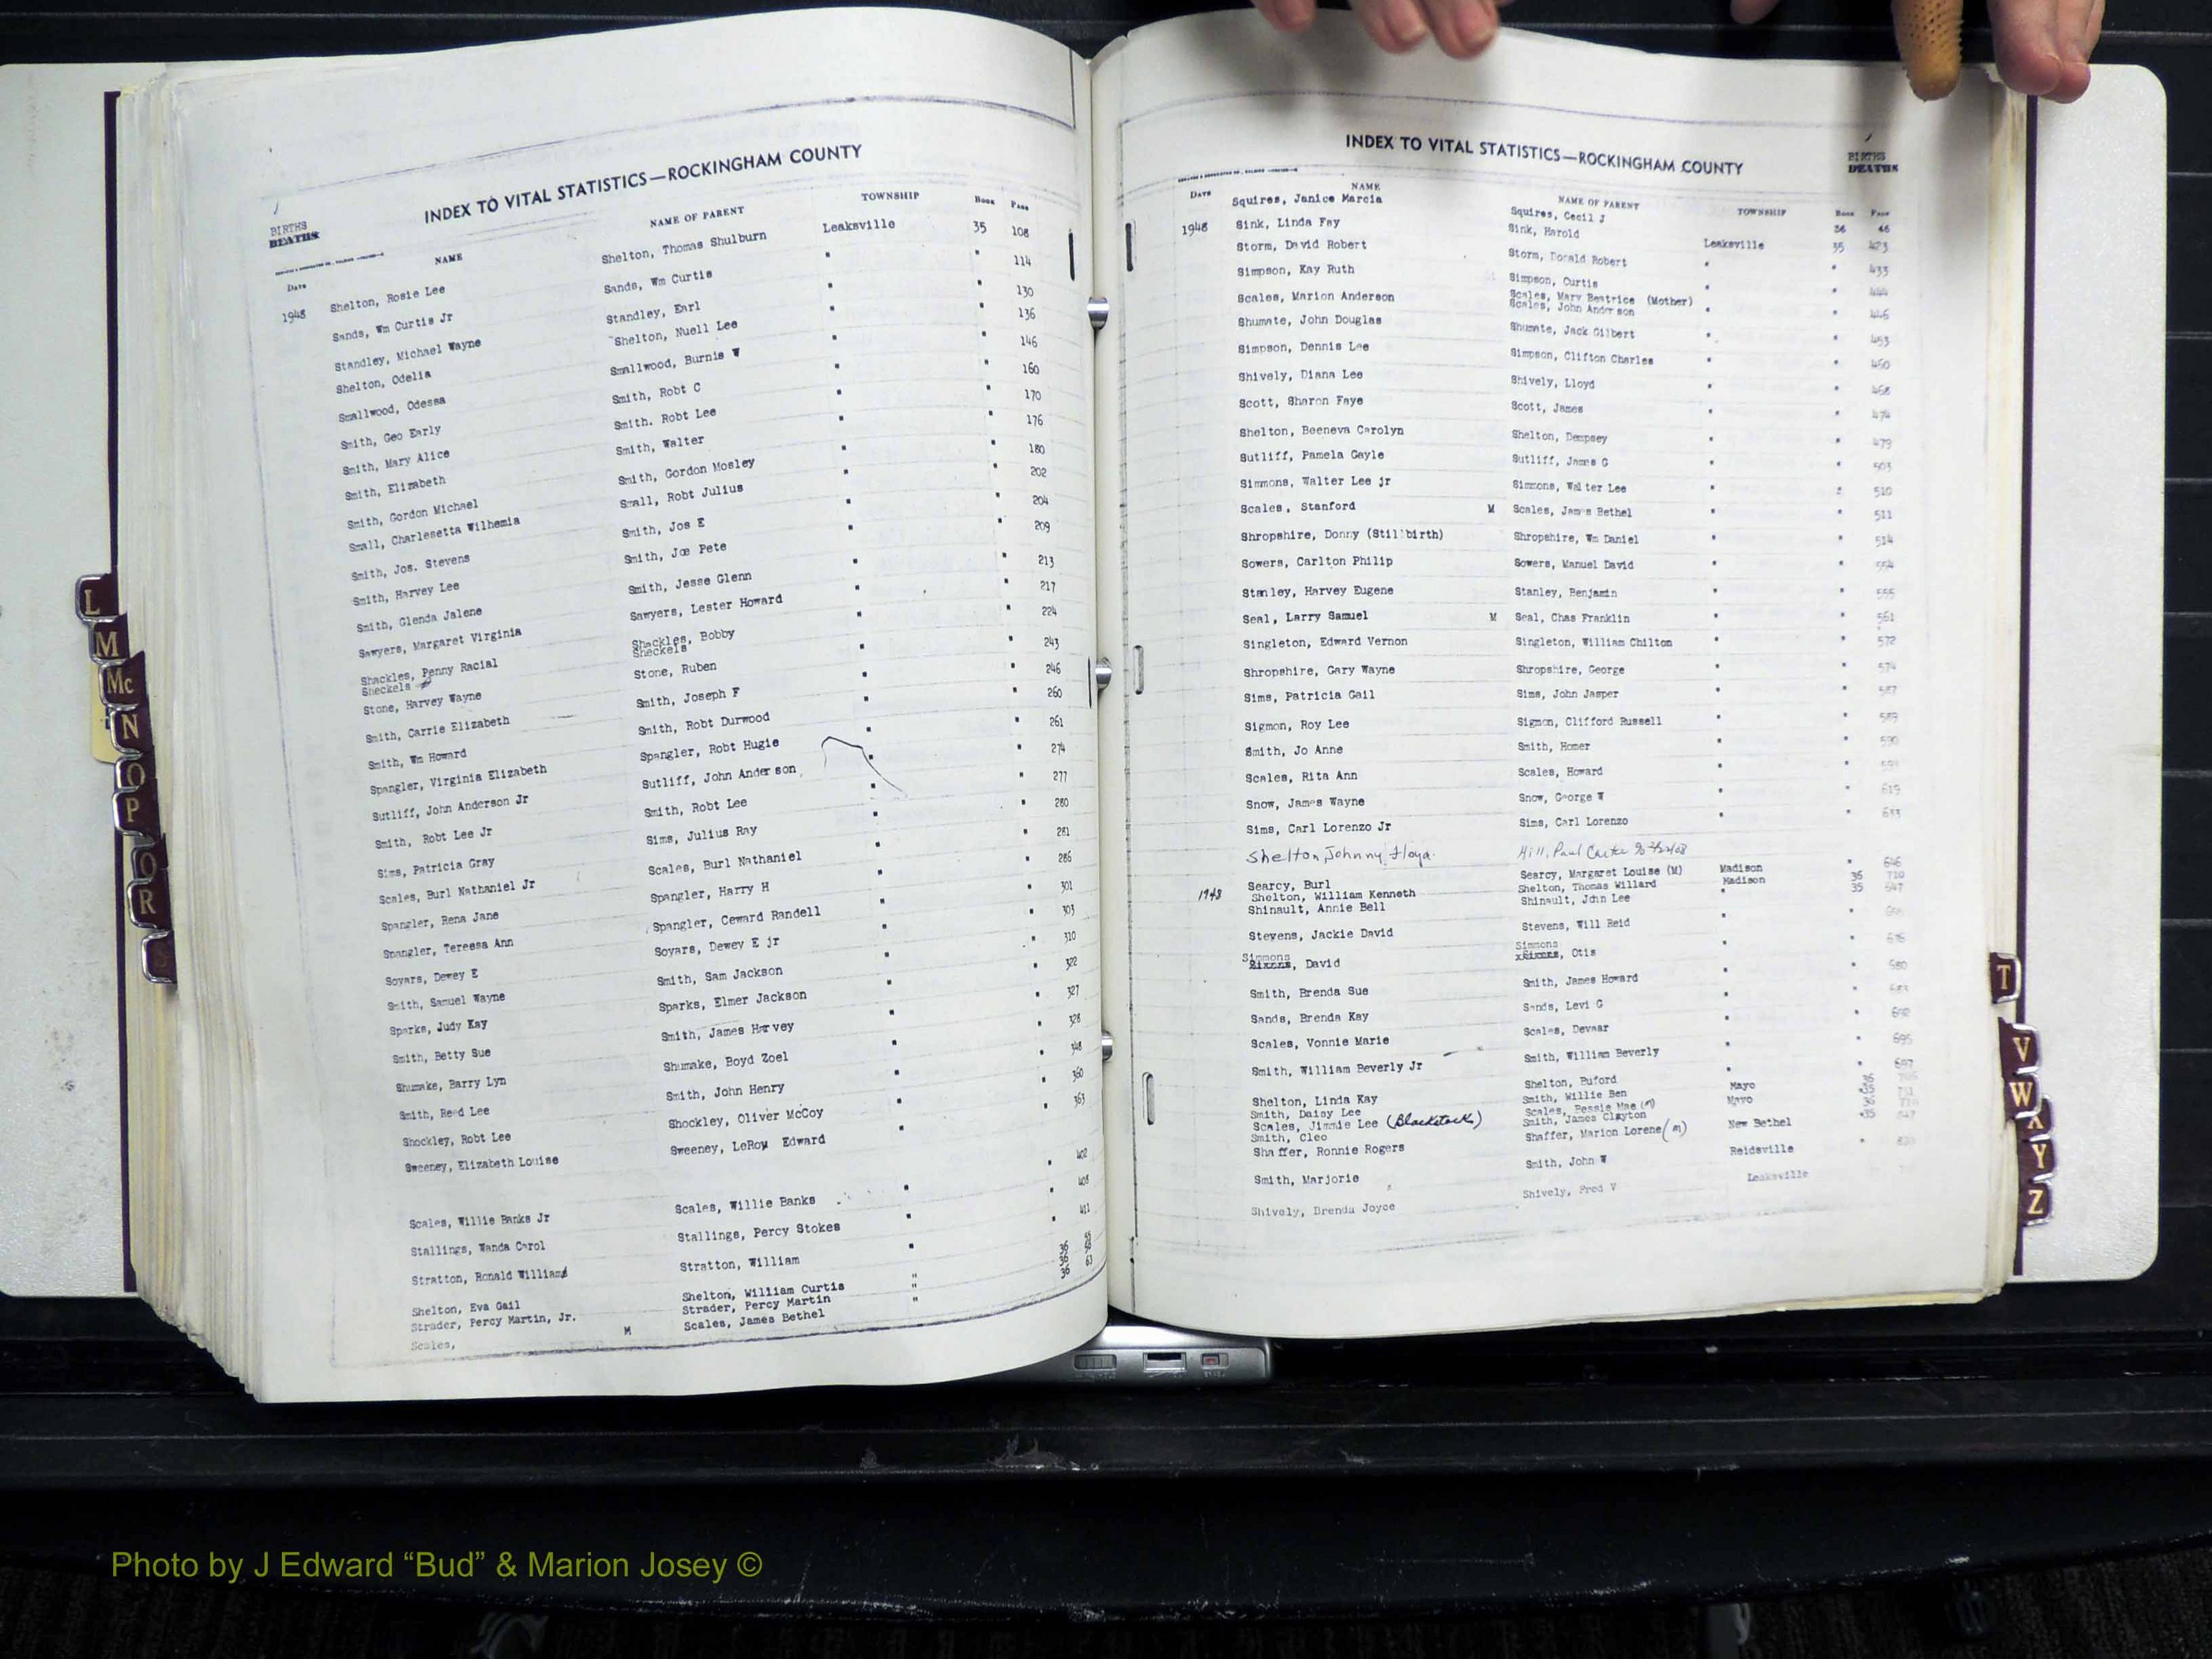 INDEX TO VITAL STATISTICS—ROCKINGHAM COUNTY
BIRTHS
DEATHS
Date NAME NAME OF PARENT TOWNSHIP Book Page
1948 Shelton, Rosie Lee Shelton, Thomas Shulburn Leaksville 35 108
Sands, Wm Curtis Jr Sands, Wm Curtis " " 114
Standley, Michael Wayne Standley, Earl " " 130
Shelton, Odelia Shelton, Nuell Lee " " 136
Smallwood, Odessa Smallwood, Burnis W " " 146
Smith, Geo Early Smith, Robt C " " 160
Smith, Mary Alice Smith. Robt Lee " " 170
Smith, Elizabeth Smith, Walter " " 176
Smith, Gordon Michael Smith, Gordon Mosley " " 180
Small, Charlesetta Wilhemia Small, Robt Julius " " 202
Smith, Jos. Stevens Smith, Jos E " " 204
Smith, Harvey Lee Smith, Joe Pete " " 209
Smith, Glenda Jalene Smith, Jesse Glenn " " 213
Sawyers, Margaret Virginia Sawyers, Lester Howard " " 217
Shackles, Penny Racial Shackles, Bobby " " 224
Sheckels Sheckels
Stone, Harvey Wayne Stone, Ruben " " 243
Smith, Carrie Elizabeth Smith, Joseph F " " 246
Smith, Wm Howard Smith, Robt Durwood " " 260
Spangler, Virginia Elizabeth Spangler, Robt Hugie " " 261
Sutliff, John Anderson Jr Sutliff, John Anderson " " 274
Smith, Robt Lee Jr Smith, Robt Lee " " 277
Sims, Patricia Gray Sims, Julius Ray " " 280
Scales, Burl Nathaniel Jr Scales, Burl Nathaniel " " 281
Spangler, Rena Jane Spangler, Harry H " " 286
Spangler, Teressa Ann Spangler, Ceward Randell " " 301
Soyars, Dewey E Soyars, Dewey E jr " " 303
Smith, Samuel Wayne Smith, Sam Jackson " " 310
Sparks, Judy Kay Sparks, Elmer Jackson " " 322
Smith, Betty Sue Smith, James Harvey " " 327
Shumake, Barry Lyn Shumake, Boyd Zoel " " 328
Smith, Reed Lee Smith, John Henry " " 348
Shockley, Robt Lee Shockley, Oliver McCoy " " 360
Sweeney, Elizabeth Louise Sweeney, LeRoy Edward " " 363
Scales, Willie Banks Jr Scales, Willie Banks " " 402
Stallings, Wanda Carol Stallings, Percy Stokes " " 408
Stratton, Ronald William Stratton, William " " 411
Shelton, Eva Gail Shelton, William Curtis " 36
Strader, Percy Martin, Jr. Strader, Percy Martin " 36
Scales, M Scales, James Bethel " 36 63
INDEX TO VITAL STATISTICS—ROCKINGHAM COUNTY
BIRTHS
DEATHS
Date NAME NAME OF PARENT TOWNSHIP Book Page
Squires, Janice Marcia Squires, Cecil J 36 46
1948 Sink, Linda Fay Sink, Harold Leaksville 35 423
Storm, David Robert Storm, Donald Robert " " 433
Simpson, Kay Ruth Simpson, Curtis " " 444
Scales, Marion Anderson Scales, Mary Beatrice (Mother) " " 446
Scales, John Anderson
Shumate, John Douglas Shumate, Jack Gilbert " " 453
Simpson, Dennis Lee Simpson, Clifton Charles " " 460
Shively, Diana Lee Shively, Lloyd " " 468
Scott, Sharon Faye Scott, James " " 474
Shelton, Beeneva Carolyn Shelton, Dempsey " " 479
Sutliff, Pamela Gayle Sutliff, James G " " 503
Simmons, Walter Lee jr Simmons, Walter Lee " " 510
Scales, Stanford M Scales, James Bethel " " 511
Shropshire, Donny (Stillbirth) Shropshire, Wm Daniel " " 514
Sowers, Carlton Philip Sowers, Manuel David " " 554
Stanley, Harvey Eugene Stanley, Benjamin " " 555
Seal, Larry Samuel M Seal, Chas Franklin " " 561
Singleton, Edward Vernon Singleton, William Chilton " " 572
Shropshire, Gary Wayne Shropshire, George " " 574
Sims, Patricia Gail Sims, John Jasper " " 587
Sigmon, Roy Lee Sigmon, Clifford Russell " " 589
Smith, Jo Anne Smith, Homer " " 590
Scales, Rita Ann Scales, Howard " "
Snow, James Wayne Snow, George W " " 619
Sims, Carl Lorenzo Jr Sims, Carl Lorenzo " " 633
Shelton, Johnny Floyd Hill, Paul Carter
Searcy, Burl Searcy, Margaret Louise (M) Madison " 646
1948 Shelton, William Kenneth Shelton, Thomas Willard Madison 36 710
Shinault, Annie Bell Shinault, John Lee " 35 647
Stevens, Jackie David Stevens, Will Reid " "
Simmons Simmons
, David , Otis " " 676
Smith, Brenda Sue Smith, James Howard " " 680
Sands, Brenda Kay Sands, Levi G " "
Scales, Vonnie Marie Scales, Devaar " " 692
Smith, William Beverly Jr Smith, William Beverly " " 695
Shelton, Linda Kay Shelton, Buford " " 697
Smith, Daisy Lee Smith, Willie Ben Mayo 36
Scales, Jimmie Lee (Blackstock) Scales, Bessie Mae (M) Mayo 35
Smith, Cleo Smith, James Clayton 36
Shaffer, Ronnie Rogers Shaffer, Marion Lorene (M) New Bethel 35
Smith, Marjorie Smith, John W Reidsville "
Shively, Brenda Joyce Shively, Fred V Leaksville
L
M
Mc
N
O
P
Q
R
S
T
V
W
X
Y
Z
Photo by J Edward “Bud” & Marion Josey ©